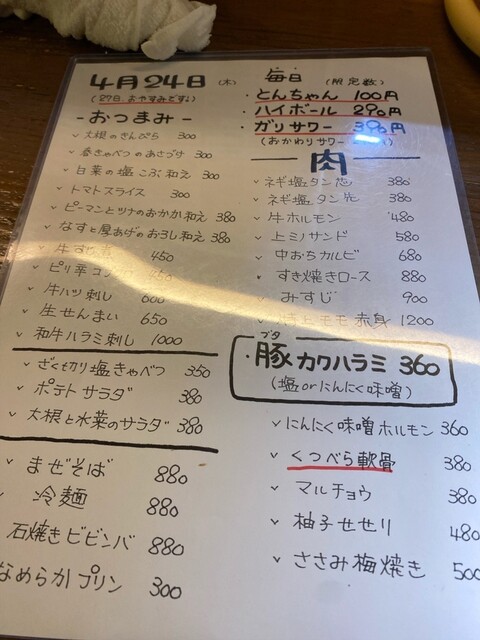 4月24日(木)
(27日、おやすみです。)
-おつまみ-
大根のきんぴら 300
春きゃべつのあさづけ 300
白菜の塩こぶ和え 300
トマトスライス 300
ピーマンとツナのおかか和え 380
なすと厚あげのおろし和え 380
牛すじ煮 450
ピリ辛コン
牛ハツ刺し 600
生せんまい 650
和牛ハラミ刺し 1000
ざく切り塩きゃべつ 350
ポテトサラダ 380
大根と水菜のサラダ 380
まぜそば 880
冷麺 880
石焼きビビンバ 880
なめらかプリン 300
毎日(限定数)
・とんちゃん 100円
・ハイボール 290円
・ガリサワー 390円
(おかわりサワー
肉
ネギ塩タン芯 380
ネギ塩タン先 380
牛ホルモン 480
上ミノサンド 580
中おちカルビ 680
すき焼きロース 880
みすじ 900
特上モモ赤身 1200
ブタ
・豚カクハラミ 360
(塩orにんにく味噌)
にんにく味噌ホルモン 360
くつべら軟骨 380
マルチョウ 380
柚子せせり 480
ささみ梅焼き 500